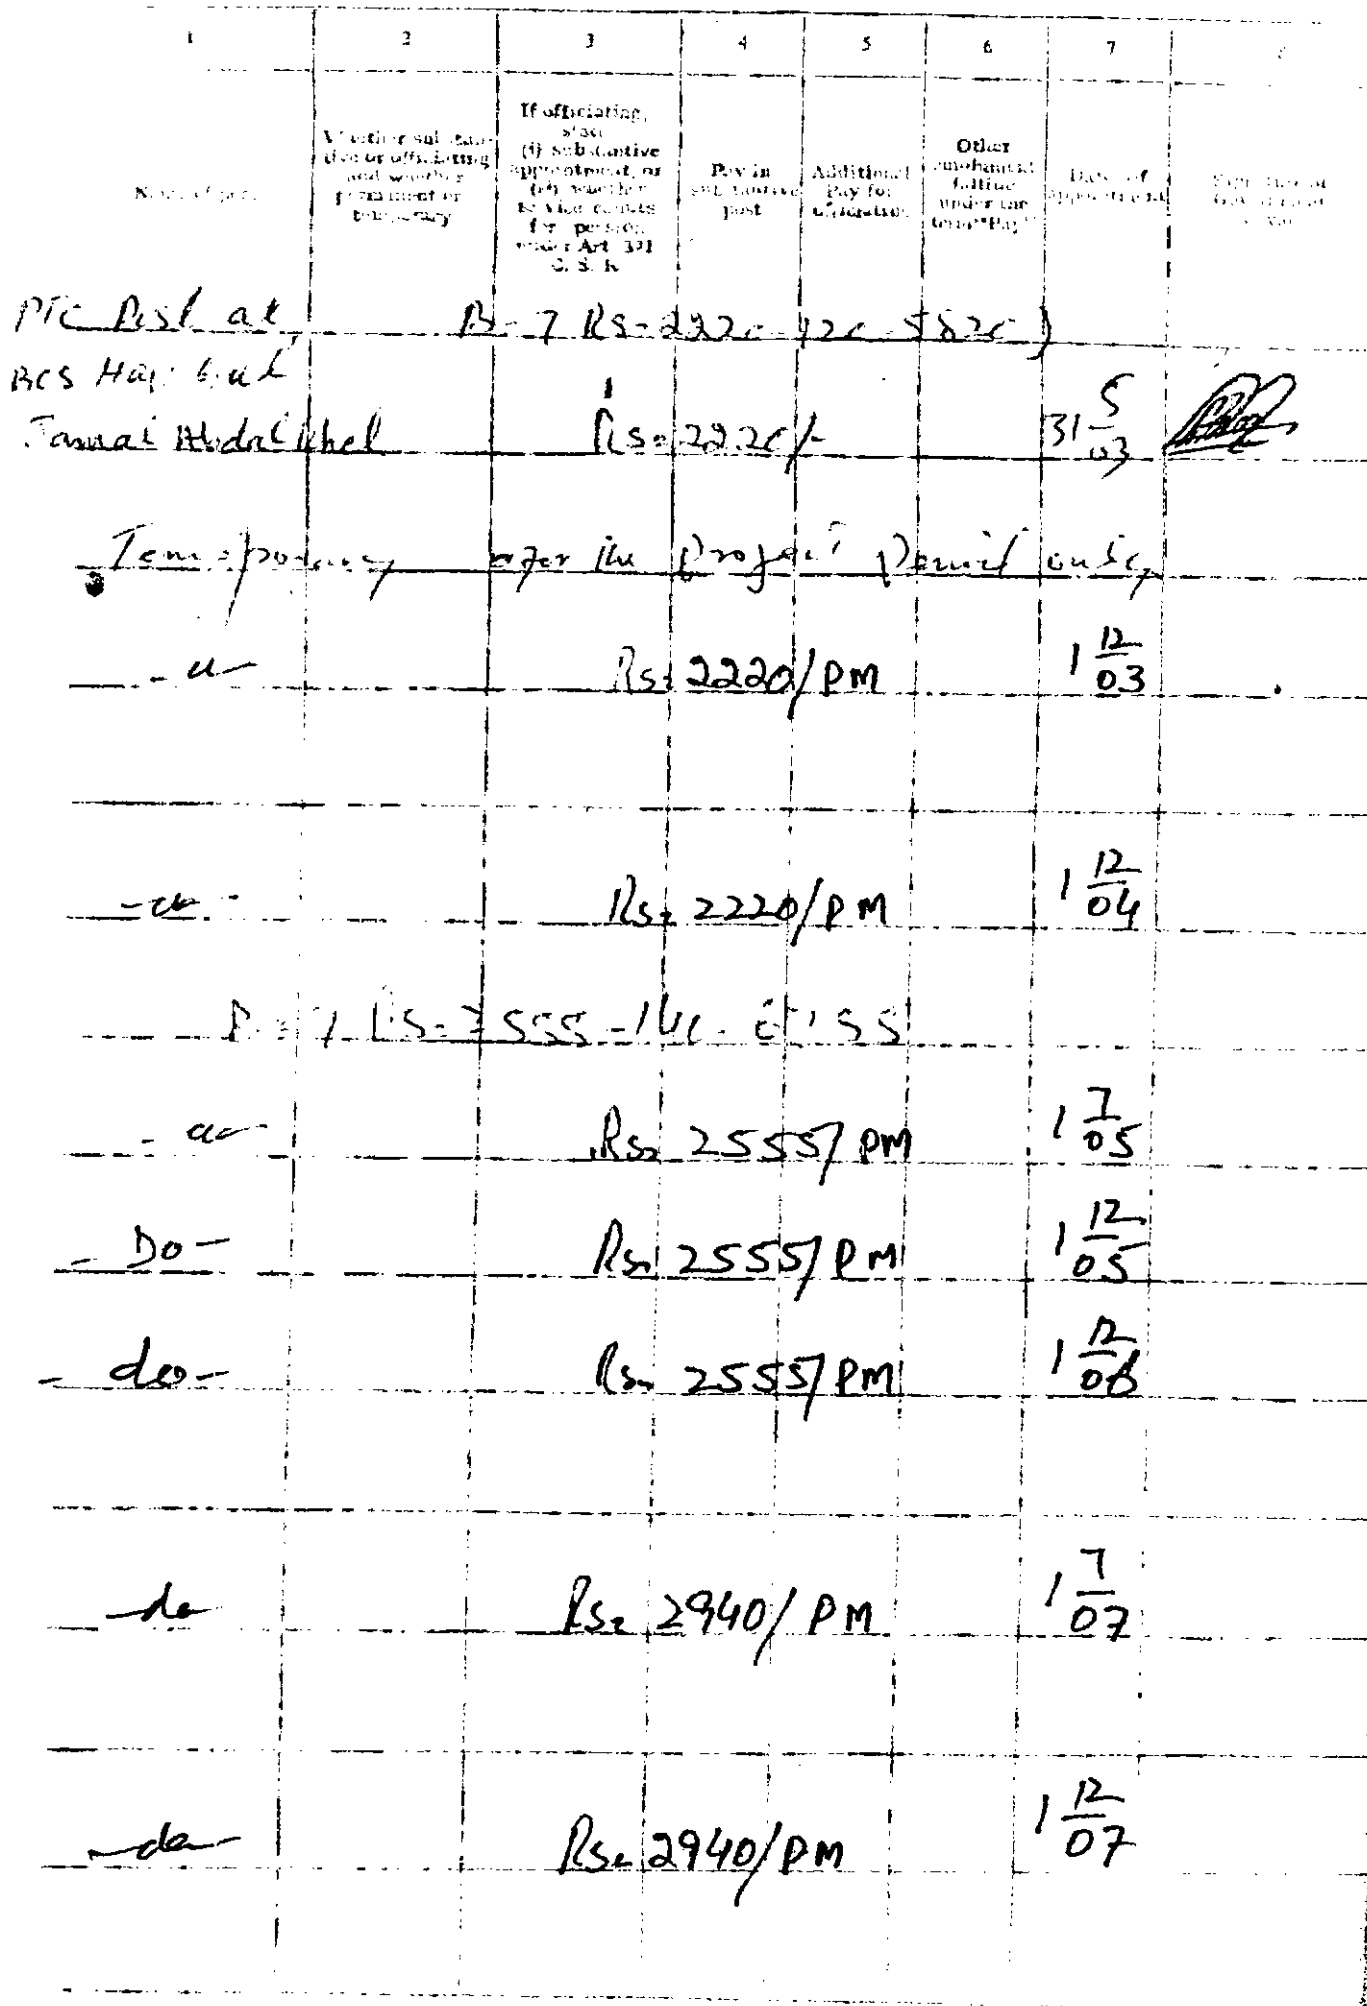 1 2 3 4 5 6 7
Name of post
Whether substantive or officiating and whether permanent or temporary
If officiating, state (i) substantive appointment, or (ii) whether service counts for pension under Art. 371 C. S. R
Pay in substantive post
Additional Pay for officiating
Other emolument falling under the term "Pay"
Date of appointment
Signature of Government
PTC Post at B-7 Rs=2220-120-5820)
BCS Haji Gul
Jamal Abdalkhel Rs=2220/- 31 5/03
Temporary the Project Period only
Rs= 2220/PM 1 12/03
Rs= 2220/PM 1 12/04
Rs=2555-140-
Rs= 2555/PM 1 7/05
- Do - Rs= 2555/PM 1 12/05
- do - Rs= 2555/PM 1 12/06
- do Rs= 2940/PM 1 7/07
- do - Rs= 2940/PM 1 12/07